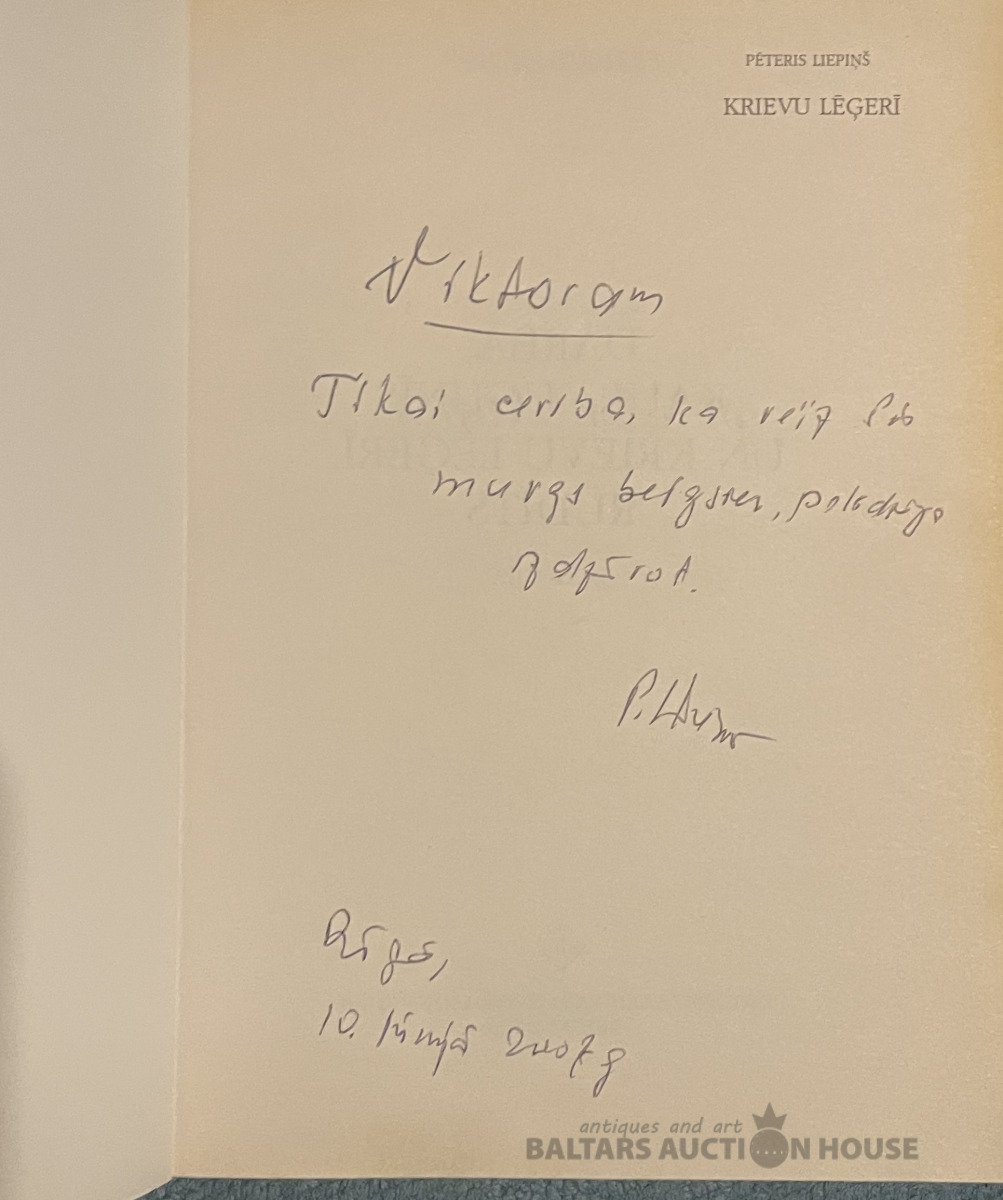 PĒTERIS LIEPIŅŠ
KRIEVU LĒĢERĪ
Viktoram
Tikai cerība, ka reiz šis
murgs beigsies, palīdzēja
izdzīvot.
Rīgā,
10. jūnijā 2007 g
antiques and art
BALTARS AUCTION HOUSE